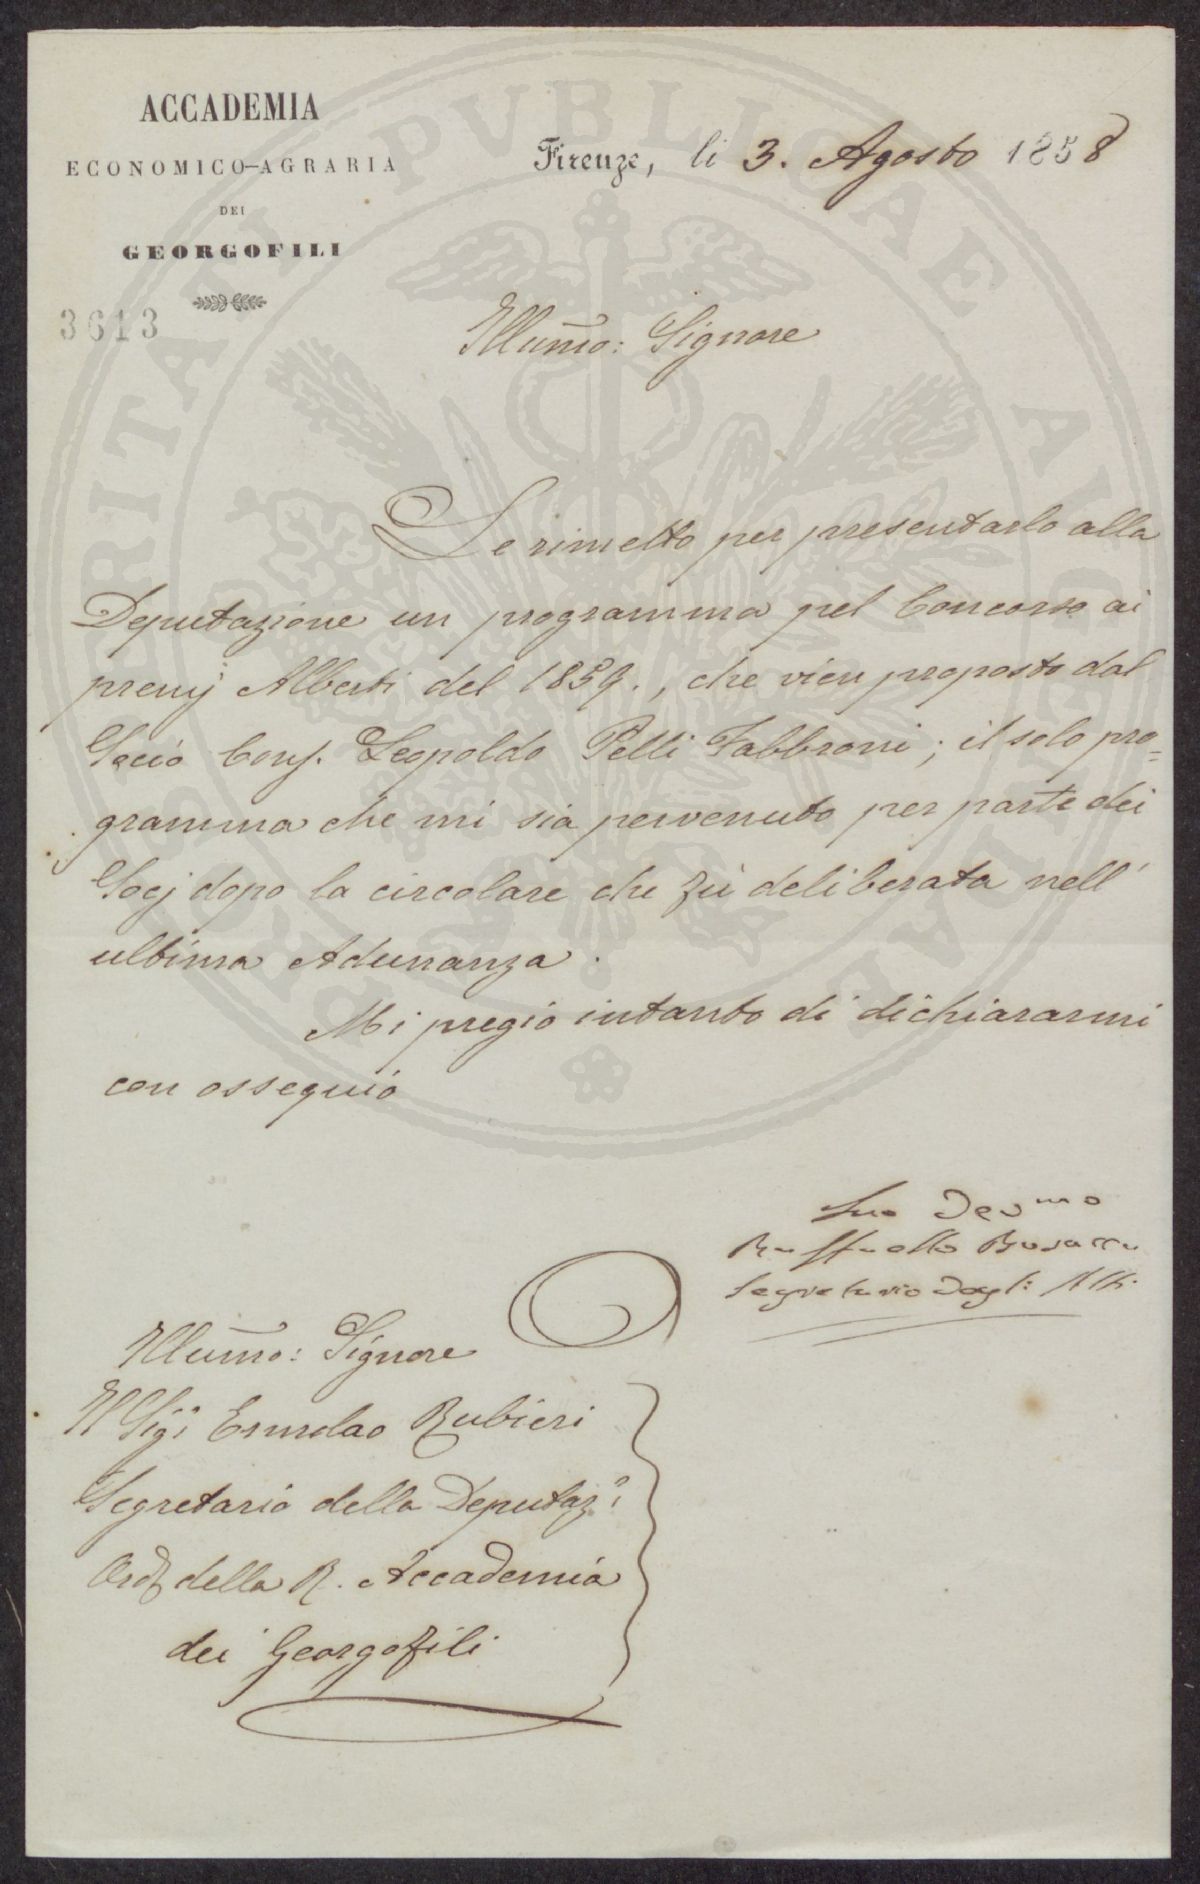 ACCADEMIA
ECONOMICO-AGRARIA
DEI
GEORGOFILI
3613
Firenze, li 3. Agosto 1858
Illumo: Signore
Le rimetto per presentarlo alla
Deputazione un programma pel Concorso ai
premj Alberti del 1859., che vien proposto dal
Socio Corrj. Leopoldo Pelli Fabbroni; il solo pro=
gramma che mi sia pervenuto per parte dei
Socj dopo la circolare che fù deliberata nell'
ultima Adunanza.
Mi pregio intanto di dichiararmi
con ossequio
Suo Devmo
Raffaello Busacca
Segretario degli Atti
Illumo: Signore
Il Sigr Ermolao Rubieri
Segretario della Deputaze
Ord della R. Accademia
dei Georgofili
PROSPERITATI PVBLICAE AVGENDAE